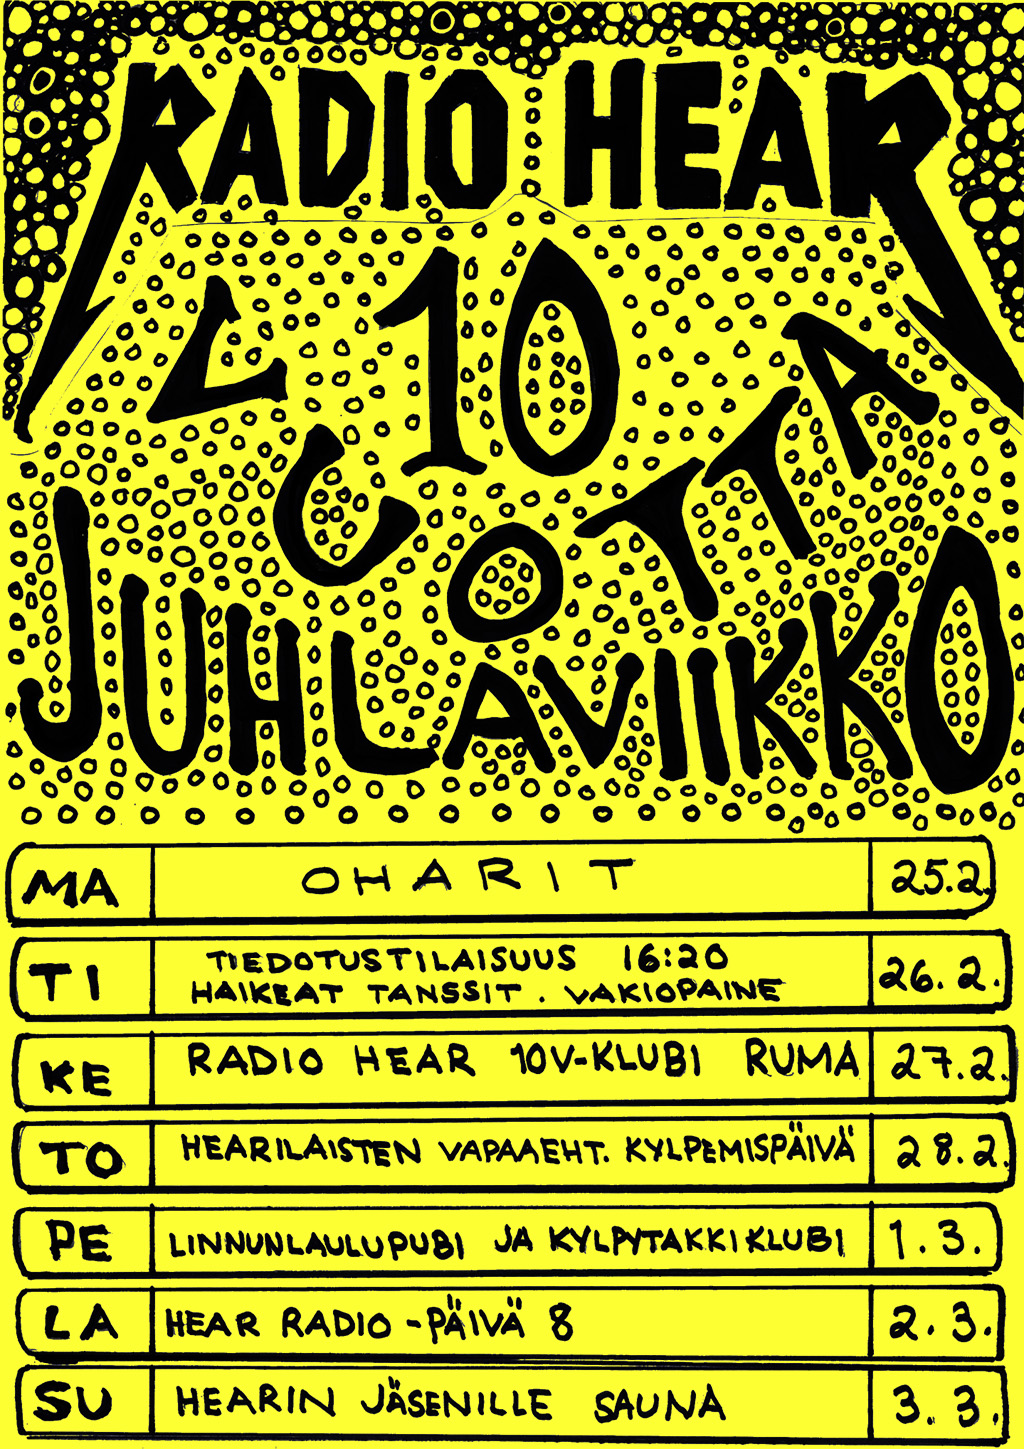 RADIO HEAR
10
VUOTTA
JUHLAVIIKKO
MA OHARIT 25.2.
TI TIEDOTUSTILAISUUS 16:20
HAIKEAT TANSSIT. VAKIOPAINE 26.2.
KE RADIO HEAR 10V-KLUBI RUMA 27.2.
TO HEARILAISTEN VAPAAEHT. KYLPEMISPÄIVÄ 28.2.
PE LINNUNLAULUPUBI JA KYLPYTAKKIKLUBI 1.3.
LA HEAR RADIO-PÄIVÄ 8 2.3.
SU HEARIN JÄSENILLE SAUNA 3.3.